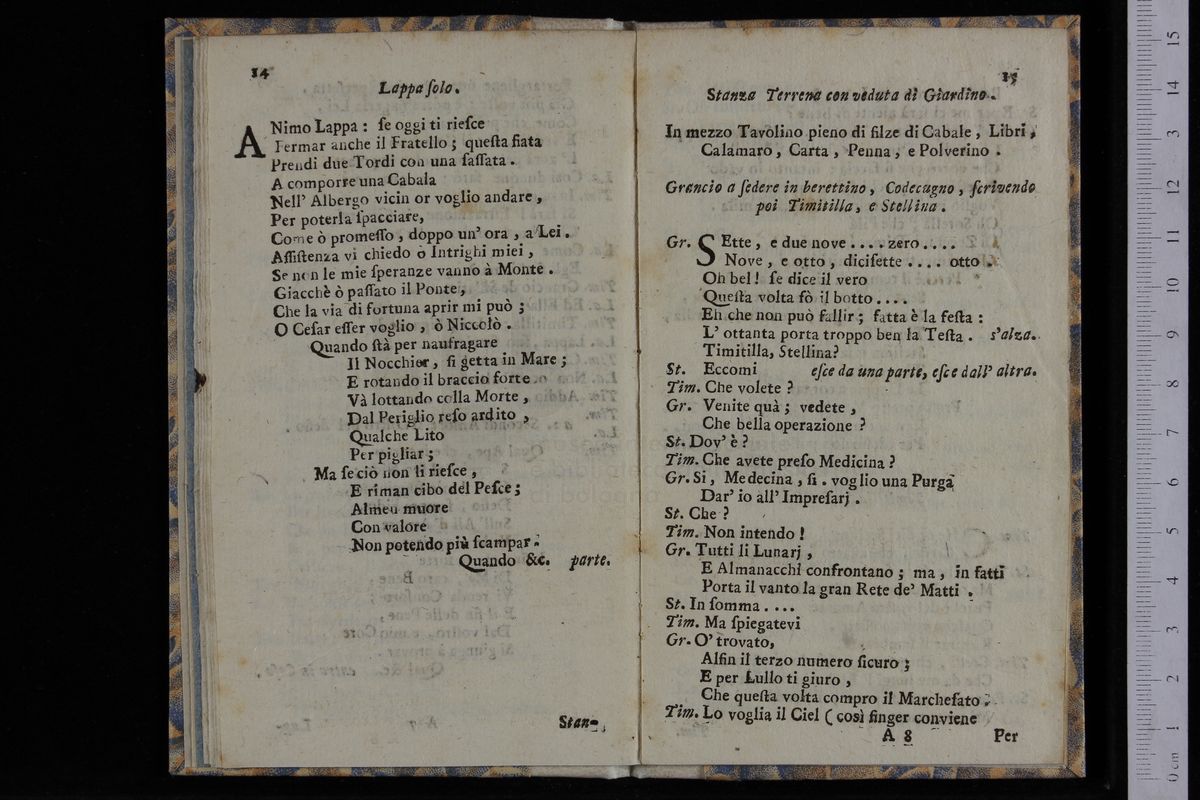 14
Lappa ſolo.
ANimo Lappa : ſe oggi ti rieſce
Fermar anche il Fratello ; queſta fiata
Prendi due Tordi con una ſaſſata .
A comporre una Cabala
Nell' Albergo vicin or voglio andare ,
Per poterla ſpacciare,
Come ò promeſſo , doppo un' ora , a Lei .
Aſſiſtenza vi chiedo ò Intrighi miei ,
Se non le mie ſperanze vanno à Monte .
Giacchè ò paſſato il Ponte ,
Che la via di fortuna aprir mi può ;
O Ceſar eſſer voglio , ò Niccolò .
Quando ſtà per naufragare
Il Nocchier , ſi getta in Mare ;
E rotando il braccio forte
Và lottando colla Morte ,
Dal Periglio reſo ardito ,
Qualche Lito
Per pigliar ;
Ma ſe ciò non li rieſce ,
E riman cibo del Peſce ;
Almeu muore
Con valore
Non potendo più ſcampar .
Quando &c. parte.
Stan-
15
Stanza Terrena con veduta di Giardino .
In mezzo Tavolino pieno di filze di Cabale , Libri ,
Calamaro , Carta , Penna , e Polverino .
Grancio a ſedere in berettino , Codecugno , ſcrivendo
poi Timitilla , e Stellina .
Gr. SEtte , e due nove .... zero ....
Nove , e otto , diciſette .... otto .
Oh bel ! ſe dice il vero
Queſta volta fò il botto ....
Eh che non può fallir ; fatta è la feſta :
L' ottanta porta troppo ben la Teſta . s'alza.
Timitilla, Stellina ?
St. Eccomi eſce da una parte, eſce dall' altra.
Tim. Che volete ?
Gr. Venite quà ; vedete ,
Che bella operazione ?
St. Dov' è ?
Tim. Che avete preſo Medicina ?
Gr. Si , Medecina , ſi . voglio una Purga
Dar' io all' Impreſarj .
St. Che ?
Tim. Non intendo !
Gr. Tutti li Lunarj ,
E Almanacchi confrontano ; ma , in fatti
Porta il vanto la gran Rete de' Matti .
St. In ſomma ....
Tim. Ma ſpiegatevi
Gr. O' trovato,
Alfin il terzo numero ſicuro ;
E per Lullo ti giuro ,
Che queſta volta compro il Marcheſato .
Tim. Lo voglia il Ciel ( così finger conviene
A 8 Per